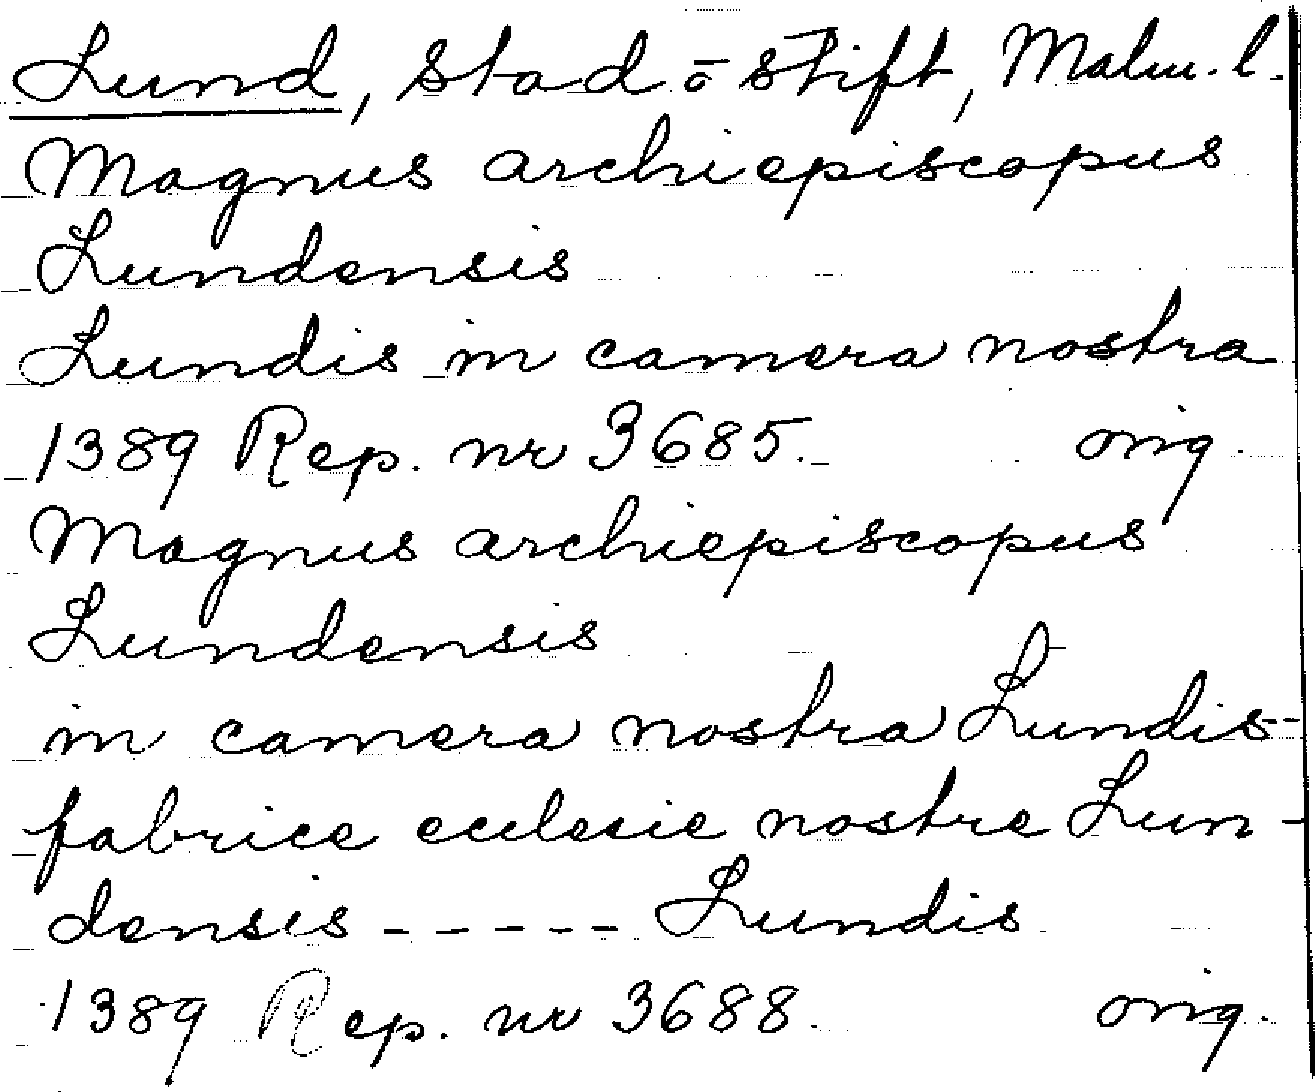 Lund, Stad o Stift, Malm. l.
Magnus archiepiscopus
Lundensis
Lundis in camera nostra
1389 Rep. nr 3685. orig.
Magnus archiepiscopus
Lundensis
in camera nostra Lundis -
fabrice ecclesie nostre Lun-
densis - - - - - Lundis
1389 Rep. nr 3688. orig.